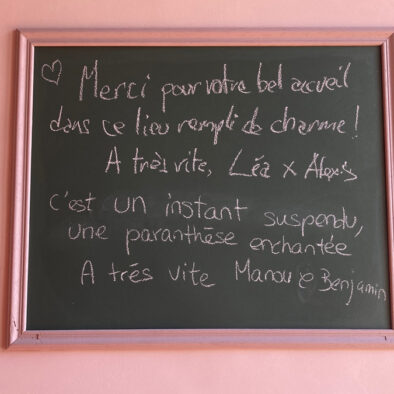 ♡ Merci pour votre bel accueil
dans ce lieu rempli de charme !
A très vite, Léa x Alexis
C'est un instant suspendu,
une paranthèse enchantée
A trés vite Manou & Benjamin